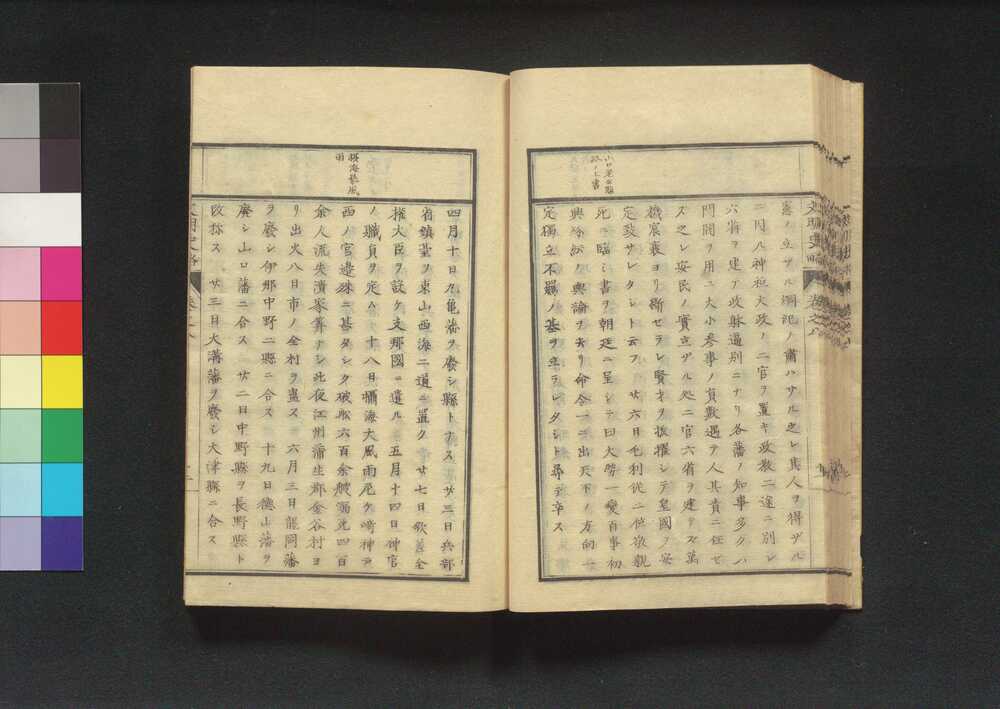 憲ノ立サル綱紀ノ肅ハサル之レ其人ヲ得ザル
ニ因ル神祇大政ノ二官ヲ置キ政教二途ニ別レ
門閥ヲ用ユ大小参事ノ員數過テ人其責ニ任セ
ス之レ安民ノ實立ザル処ニ官六省ヲ建テス萬
機宸衷ヨリ断セラレ賢才ヲ抜擢シテ皇國ヲ安
定致サレタシト云フ 廿六日毛利従二位敬親
死ニ臨ミ書ヲ朝廷ニ呈シテ曰大勢一變百事初
興紛紜ノ輿論ヲ去リ命令一ニ出天下ノ方向一
定獨立不羈ノ基ヲ立ラレタシト尋テ卒ス
文明史略 巻之八
四月十日丸亀藩ヲ廢シ縣トナス 廿三日兵部
省鎮䑓ヲ東山西海二道ニ置ク 廿七日欽差全
權大臣ヲ設ケ支那國ニ遣ル 五月十四日神官
ノ職員ヲ定ム 十八日攝海大風雨尼ケ崎神戸
西ノ宮邉殊ニ甚タシク破船六百余艘溺死四百
余人流失潰家算ナシ此夜江州蒲生郡金谷村ヨ
リ出火八日市ノ金村ヲ盡ス 六月三日龍岡藩
ヲ廢シ伊那中野二縣ニ合ス 十九日徳山藩ヲ
廢シ山口藩ニ合ス 廿二日中野縣ヲ長野縣ト
改称ス 廿三日大溝藩ヲ廢シ大津縣ニ合ス
攝海暴風
雨